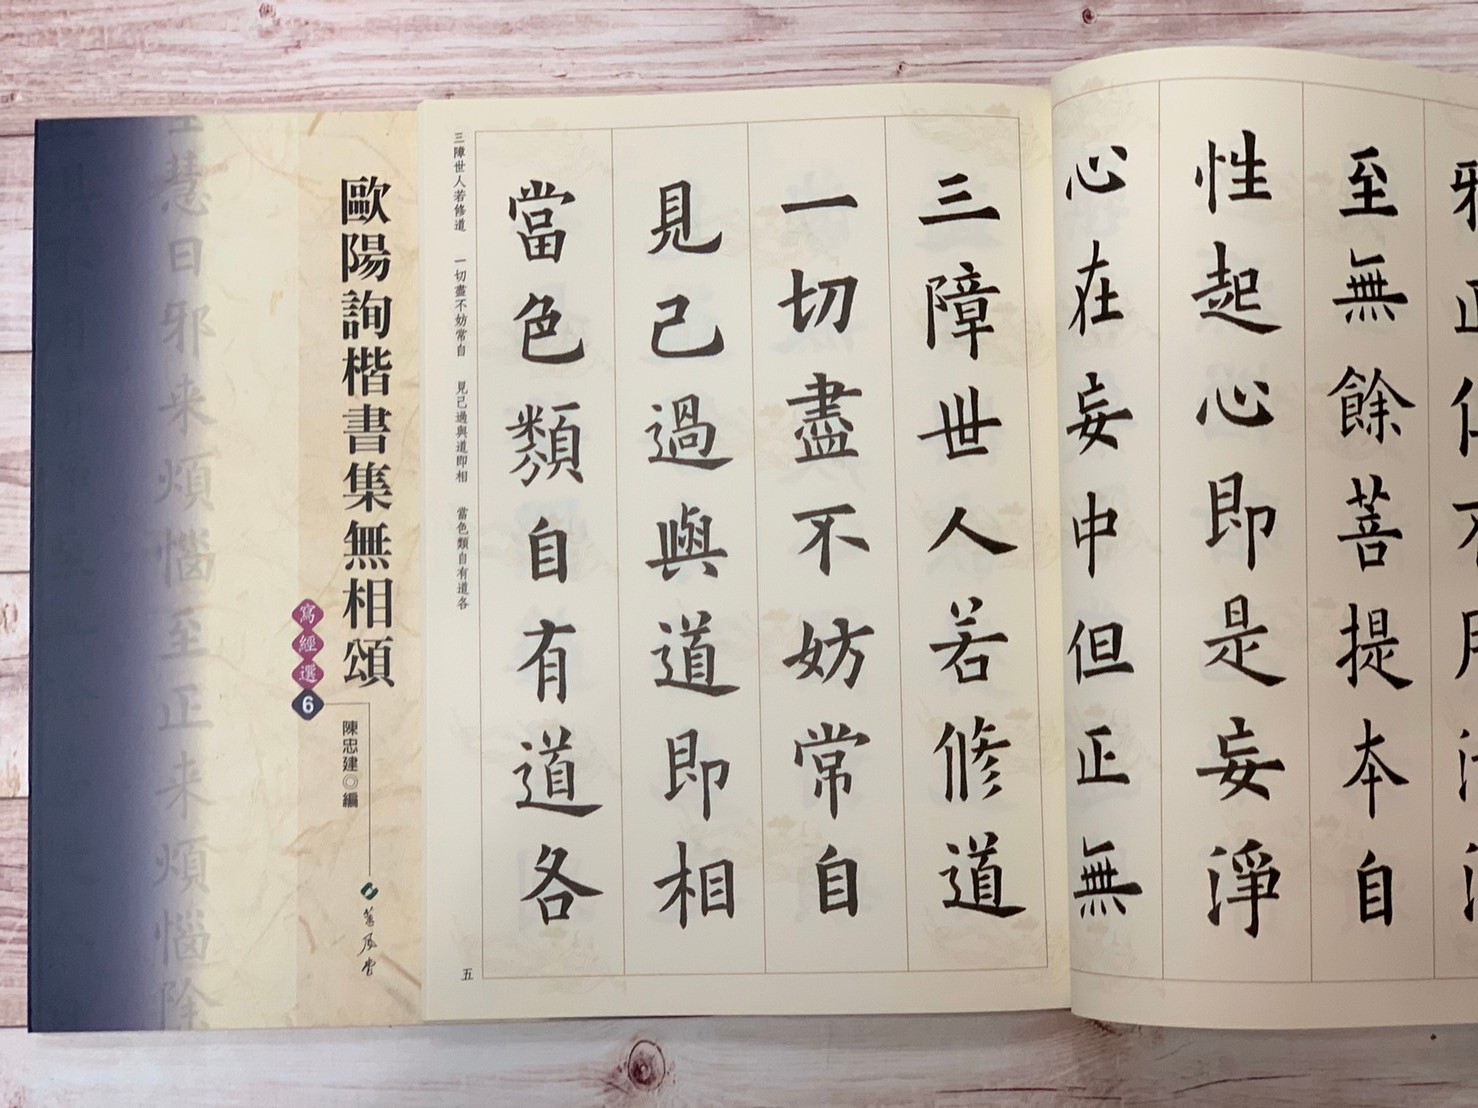 至無餘菩提本自
性起心即是妄淨
心在妄中但正無
三障世人若修道
一切盡不妨常自
見己過與道即相
當色類自有道各
三障世人若修道 一切盡不妨常自 見己過與道即相 當色類自有道各
五
歐陽詢楷書集無相頌
寫經選6
陳忠建◎編
蕙風堂
慧日邪来煩惱至正来煩惱除